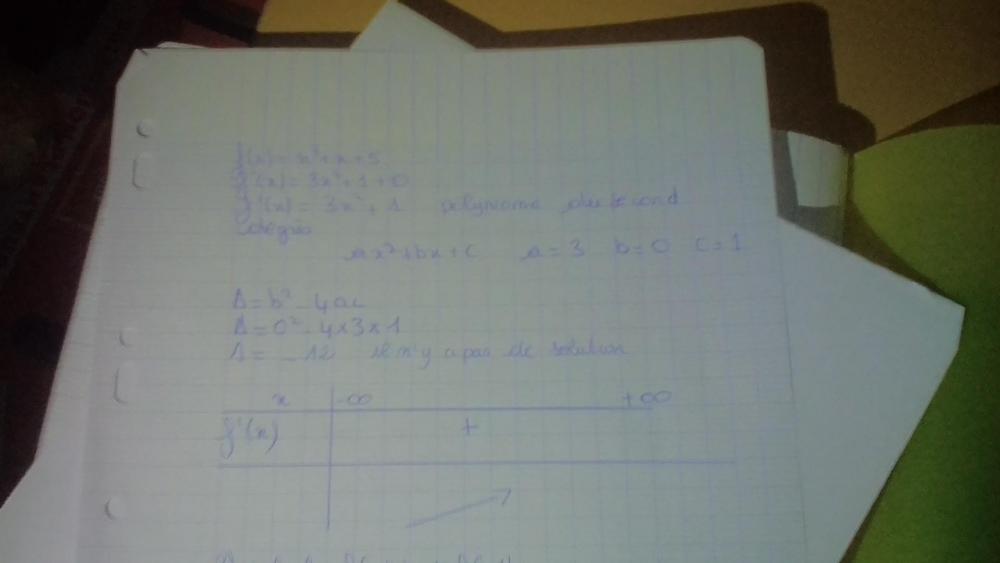 f(x) = x³ + x + 5
f'(x) = 3x² + 1 + 0
f'(x) = 3x² + 1 polynome du second
degré
ax² + bx + c a = 3 b = 0 c = 1
Δ = b² - 4ac
Δ = 0² - 4 x 3 x 1
Δ = - 12 il n'y a pas de solution
x -∞ +∞
f'(x) +